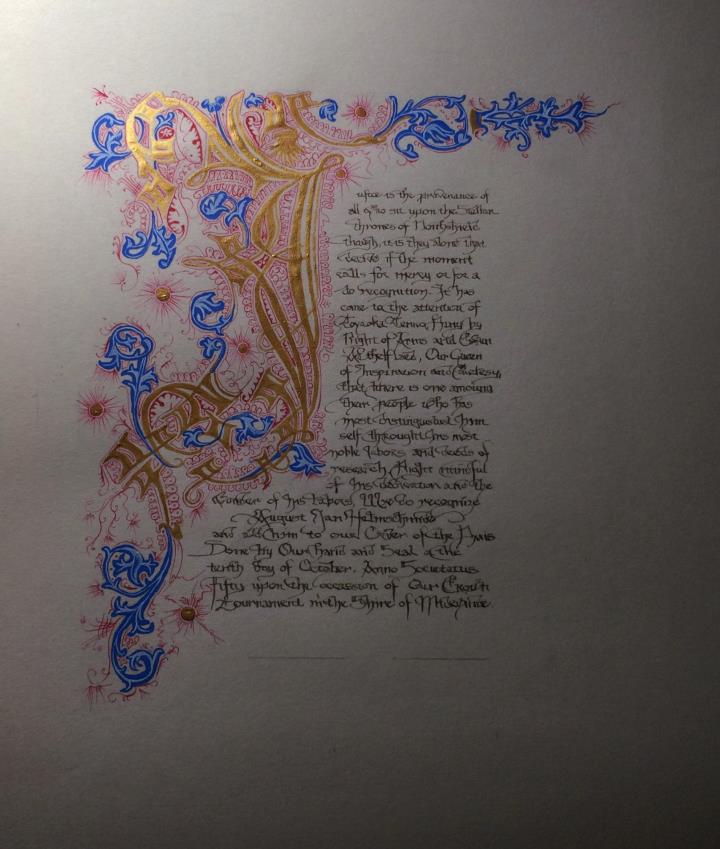 Justice is the provenance of
all who sit upon the Stellar
thrones of Northshield
though, it is they alone that
decide if the moment
calls for mercy or for a
do recognition. It has
come to the attention of
Toyaoka Tenno, King by
Right of Arms and
Aethelflaed, Our Queen
of Inspiration and Courtesy,
that there is one among
their people who has
most distinguished him
self through his most
noble labors and deeds of
research Right mindful
of his dedication and the
of his labors, We do recognize
August Jan
and add him to our Order of the
Done by Our hand and Seal on the
tenth Day of October, Anno Societatus
Fifty upon the occasion of Our Crown
Tournament in the Shire of